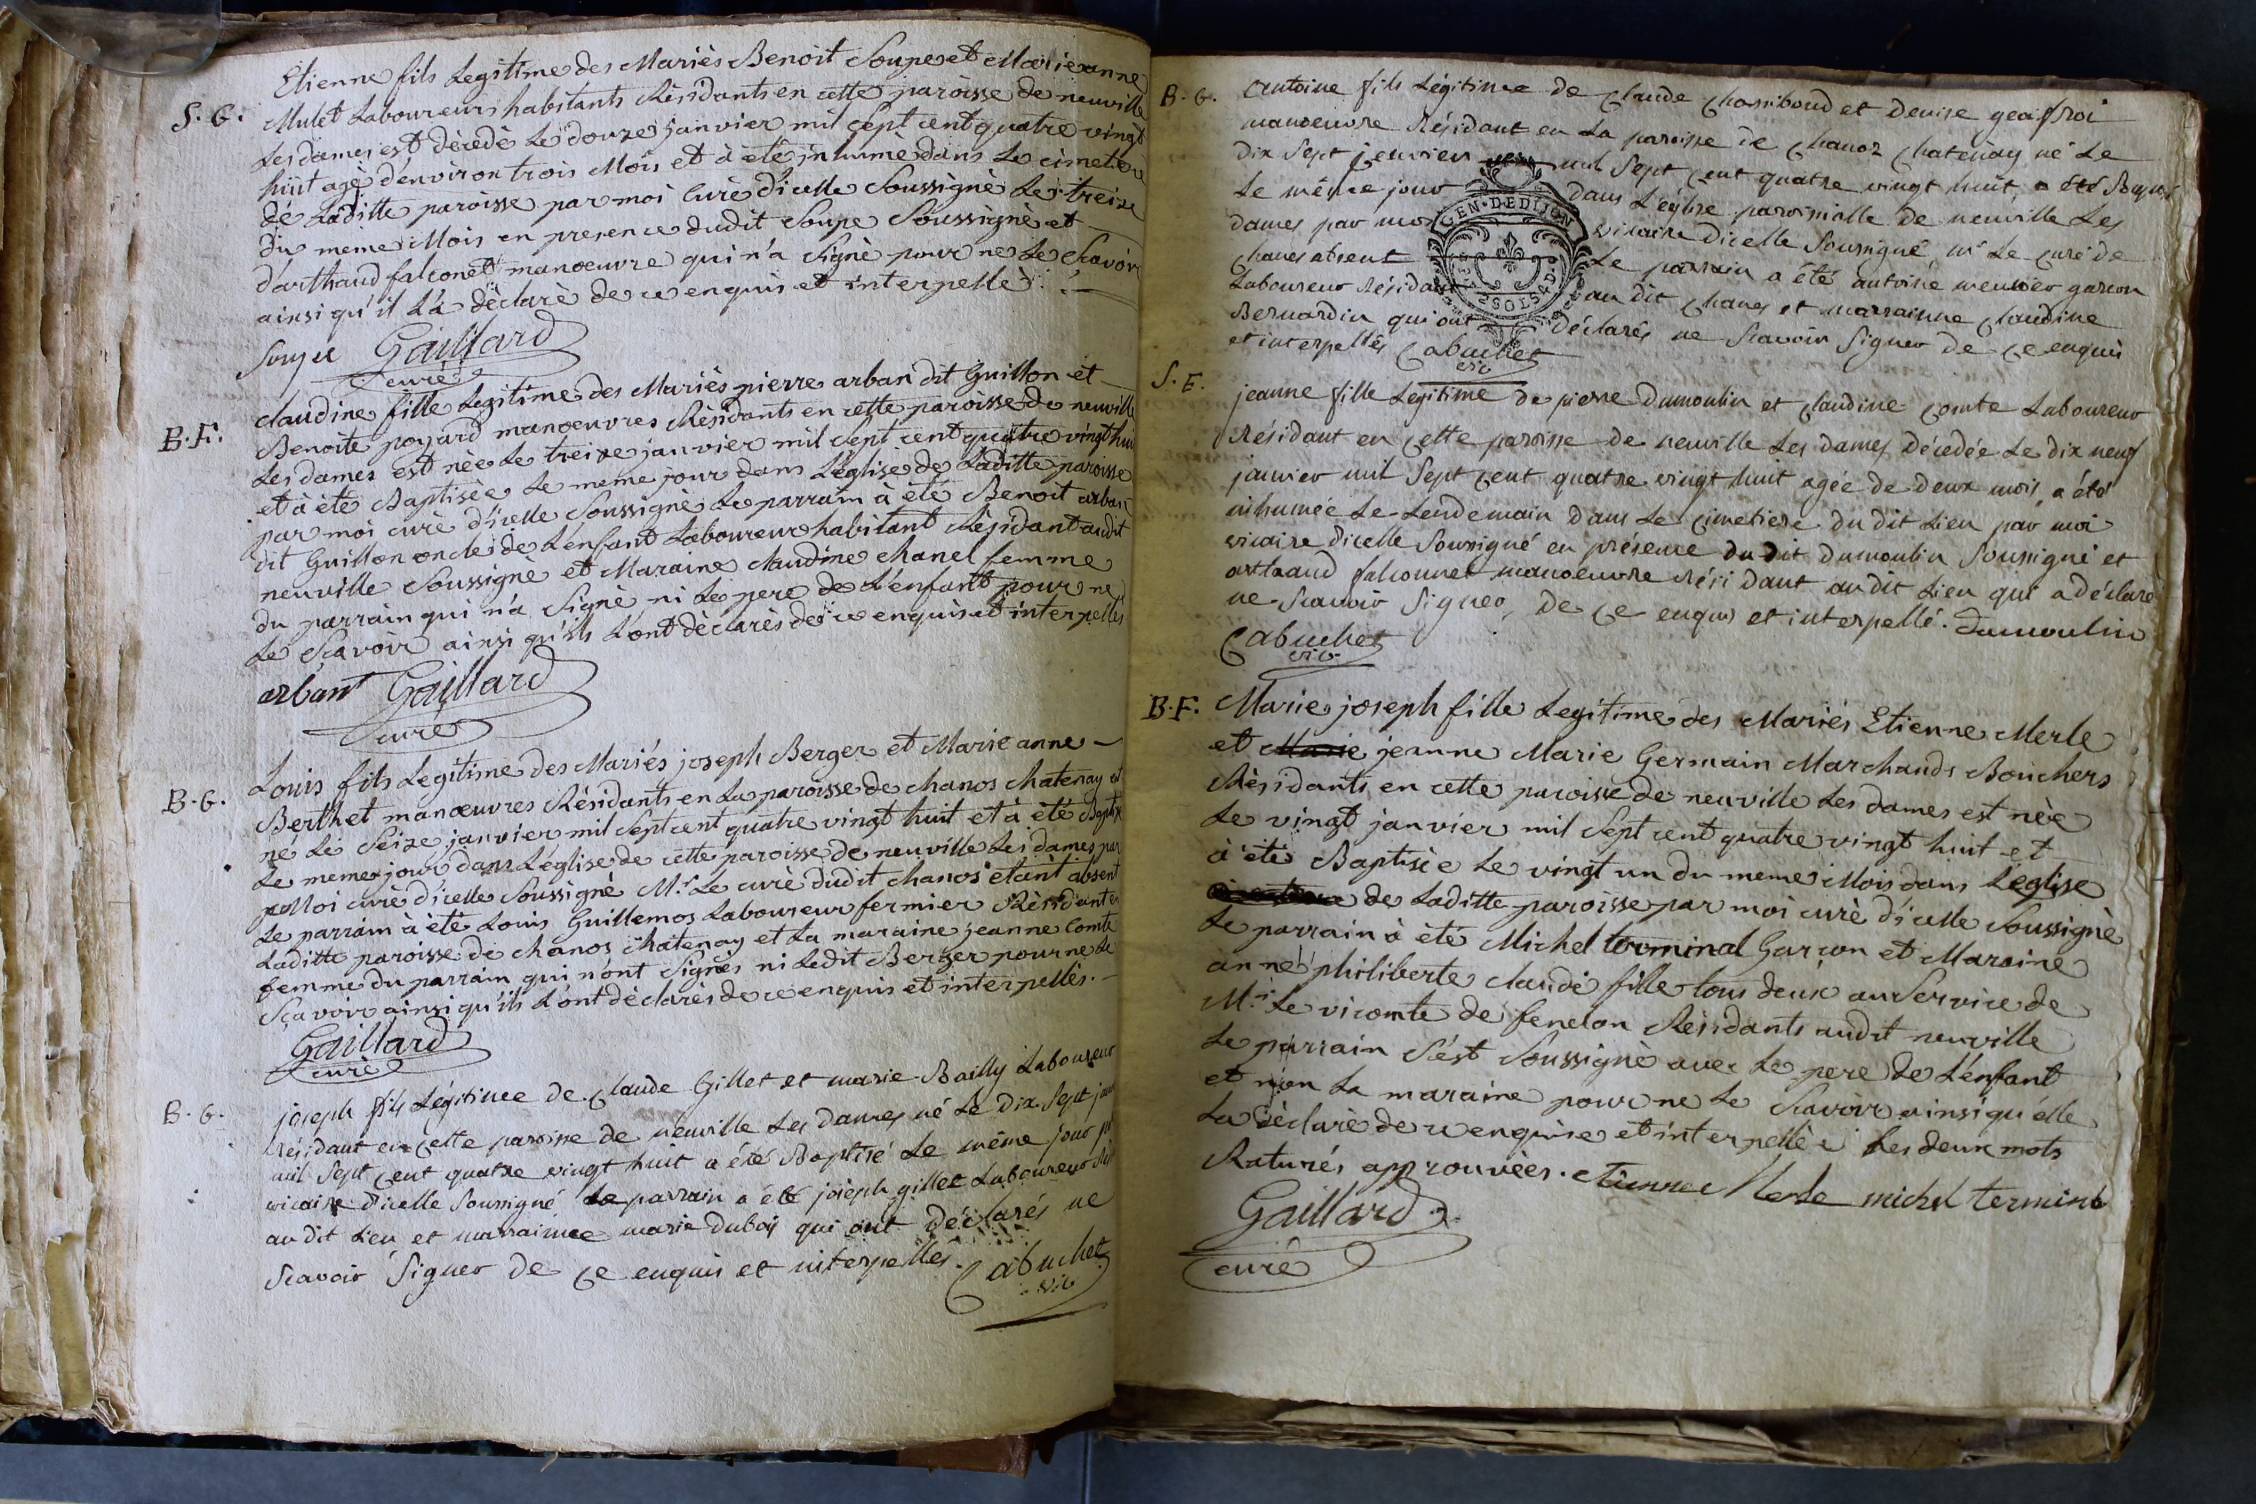 S. G.
Etienne fils Legitime des Mariès Benoit Soupe et Marieanne
Mulet Laboureurs habitants Résidants en cette paroisse de neuville
Les dames est dècèdè Le douze janvier mil sept cent quatre vingt
huit agè d'environ trois Mois et à étè inhumè dans Le cimetiere
de Laditte paroisse par moi Curè d'icelle Soussignè Le treize
du meme Mois en presence dudit Soupe Soussignè et
d'arthaud falconet manoeuvre qui n'a Signè pour ne Le Sçavoir
ainsi qu'il L'a dèclarè de ce enquis et interpellè.
Soupe Gaillard
curè
B. F.
claudine fille Legitime des Mariès pierre arban dit Guillon et
Benoite poyard manoeuvres Résidants en cette paroisse de neuville
Les dames est nèe Le treize janvier mil Sept cent quatre vingt huit
et à étè Baptisèe Le meme jour dans L'église de Laditte paroisse
par moi curè d'icelle Soussignè Le parrain à étè Benoit arban
dit Guillon oncle de L'enfant Laboureur habitant Résidant audit
neuville Soussignè et Maraine claudine chanel femme
du parrain qui n'a Signè ni Le pere de L'enfant pour ne
Le Sçavoir ainsi qu'ils L'ont dèclarès de ce enquis et interpellès
arban Gaillard
curè
B. G.
Louis fils Legitime des Mariés joseph Berger et Marie anne
Berthet manœuvres Résidants en La paroisse de chanos chatenay est
né Le Seize janvier mil Sept cent quatre vingt huit et à étè Baptisé
Le meme jour dans L'église de cette paroisse de neuville Les dames par
Moi curè d'icelle Soussignè M.r Le curè dudit chanos étant absent
Le parrain à étè Louis Guillemos Laboureur fermier Résidant en
Laditte paroisse de chanos chatenay et La maraine jeanne Comte
femme du parrain qui n'ont Signès ni Ledit Berger pour ne Le
Sçavoir ainsi qu'ils L'ont dèclarès de ce enquis et interpellès.
Gaillard
curè
B. G.
joseph fils Légitime de Claude Gillet et marie Bailly Laboureur
Résidant en cette paroisse de neuville Les Dames né Le Dix Sept
mil Sept Cent quatre vingt huit a été Baptisé Le même jour
vicaire D'icelle Soussigné, Le parrain a été joseph gillet Laboureur
au dit Lieu et marrainne marie Duboy qui ont Déclarés ne
Scavoir Signer De Ce enquis et interpellés. Cabuchet
vic
B. G.
Antoine fils Légitime De Claude Chossiboud et Denise geoffroi
manoeuvre Résidant en La paroisse De Chanoz Chatenay né Le
Dix Sept janvier mil Sept Cent quatre vingt huit a été Baptisé
Le même jour dans L'église paroissialle De neuville Les
dames par moi vicaire D'icelle Soussigné, mr Le curé De
Chanes absent Le parrain a été antoine meunier garcon
Laboureur Résidant au dit Chanes et marrainne Claudine
Bernardin qui ont Déclarés ne Scavoir Signer De Ce enquis
et interpellés Cabuchet
vic
GEN. DE DIJON
S. F.
jeanne fille Légitime De pierre Dumoulin et Claudine Comte Laboureur
Résidant en Cette paroisse De neuville Les Dames Décedée Le Dix neuf
janvier mil Sept Cent quatre vingt huit agée De Deux mois, a été
inhumée Le Lendemain Dans Le Cimetiere Du Dit Lieu par moi
vicaire D'icelle Soussigné en présence Du Dit Dumoulin Soussigné et
arthaud falconnet manoeuvre Résidant au Dit Lieu qui a Déclaré
ne Scavoir Signer, De Ce enquis et interpellé. Dumoulin
Cabuchet
vic
B. F.
Marie joseph fille Legitime des Mariés Etienne Merle
et Marie jeanne Marie Germain Marchands Bouchers
Résidants en cette paroisse de neuville Les dames est nèe
Le vingt janvier mil Sept cent quatre vingt huit et
à étè Baptisèe Le vingt un du meme Mois dans L'église
de Laditte paroisse par moi curè d'icelle Soussignè
Le parrain à étè Michel terminal Garçon et Maraine
anne philiberte claude fille tous deux au Service de
M.r Le vicomte de fenelon Résidants audit neuville
Le parrain S'est Soussignè avec Le pere de L'enfant
et non La maraine pour ne Le Sçavoir ainsi qu'elle
La dèclarè de ce enquise et interpellèe Les deux mots
Raturés approuvèes. etienne Merle michel terminal
Gaillard
curè